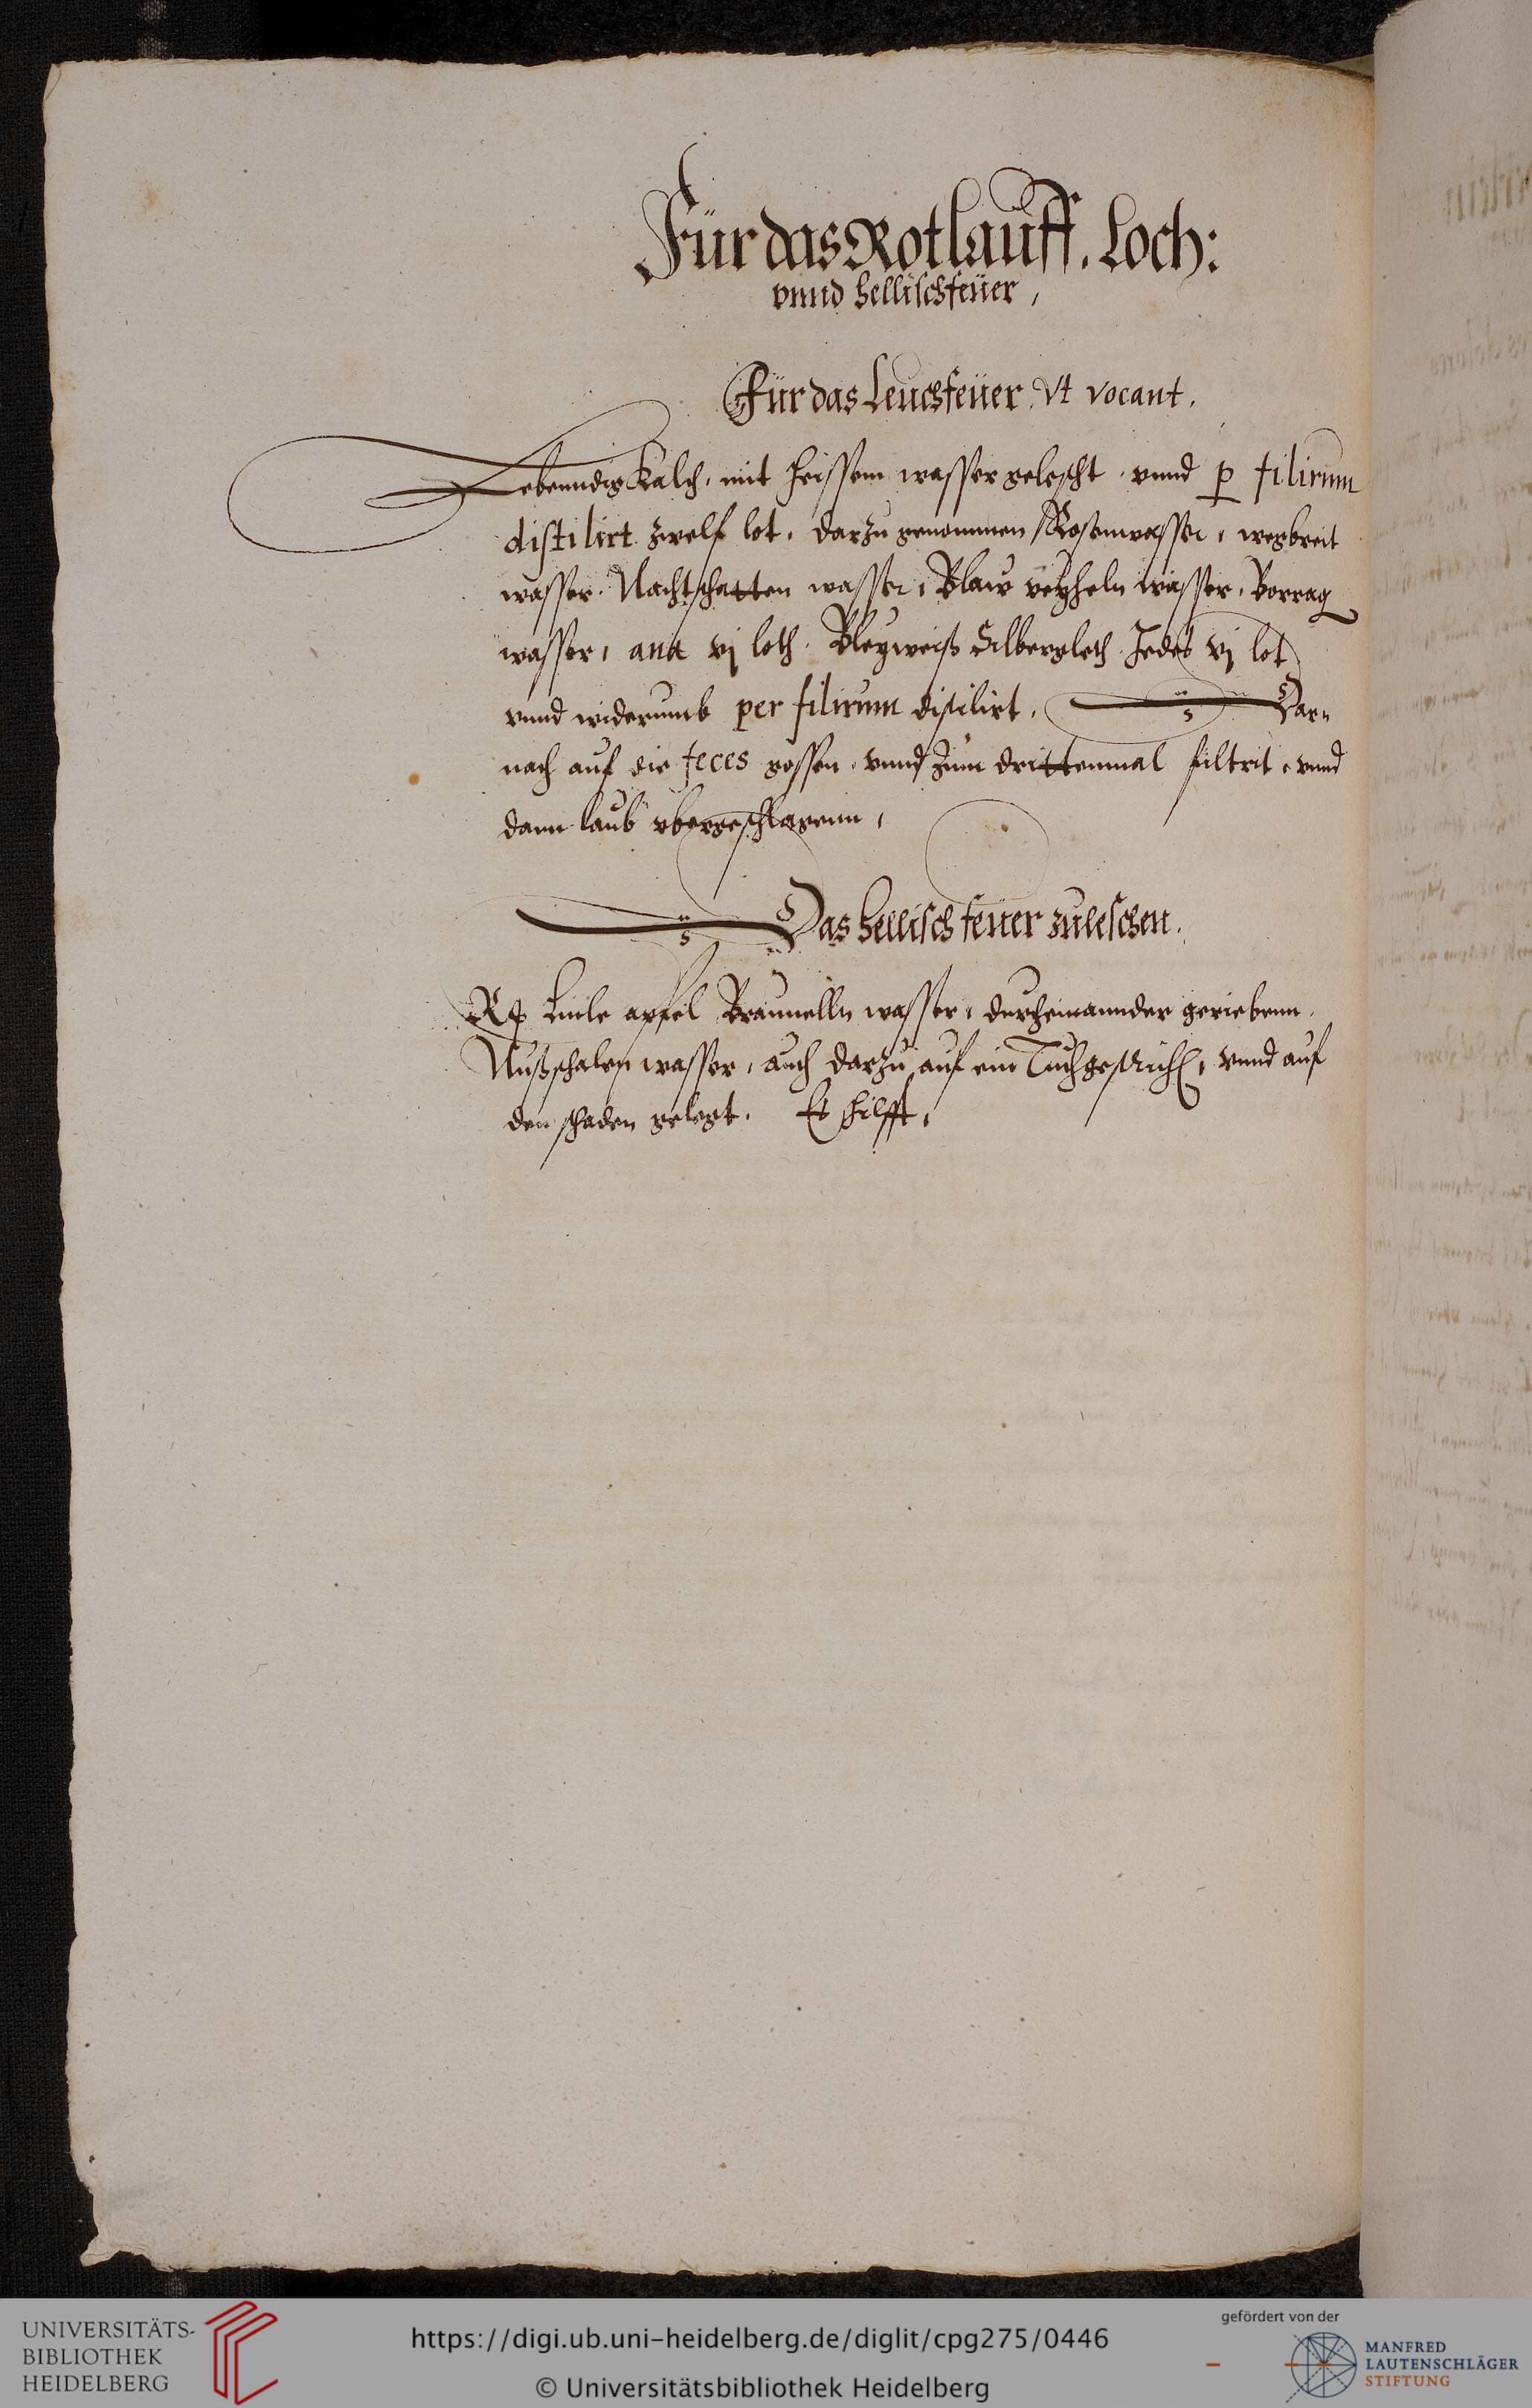 Für das Rotlauff. Loch:
vnnd hellischfeüer,
Für das Leuchfeüer, Vt vocant.
Lebenndig Kalch, mit heissem wasser gelescht. vnnd p filirum
distilirt zwelf lot, darzu genommen Rosenwasser, wegbreit
wasser. Nachtschatten wasser, Blaw veyheln wasser, Borrag
wasser, ana vj loth. Bleyweiß Silbergleth Jedes vj lot
vnnd widerumb per filirum distilirt, Dar=
nach auf die feces gossen, vnnd zum drittenmal filtrit, vnnd
dann laub vbergeschlagenn,
Das hellisch feüer zuleschen.
Rp apfel Braunelln wasser, durcheinannder geriebenn,
Nußschalen wasser, auch darzu auf ein Tuch gestrichen, vnnd auf
den schaden gelegt. Es hilfft,
UNIVERSITÄTS-
BIBLIOTHEK
HEIDELBERG
https://digi.ub.uni-heidelberg.de/diglit/cpg275/0446
© Universitätsbibliothek Heidelberg
gefördert von der
MANFRED
LAUTENSCHLÄGER
STIFTUNG